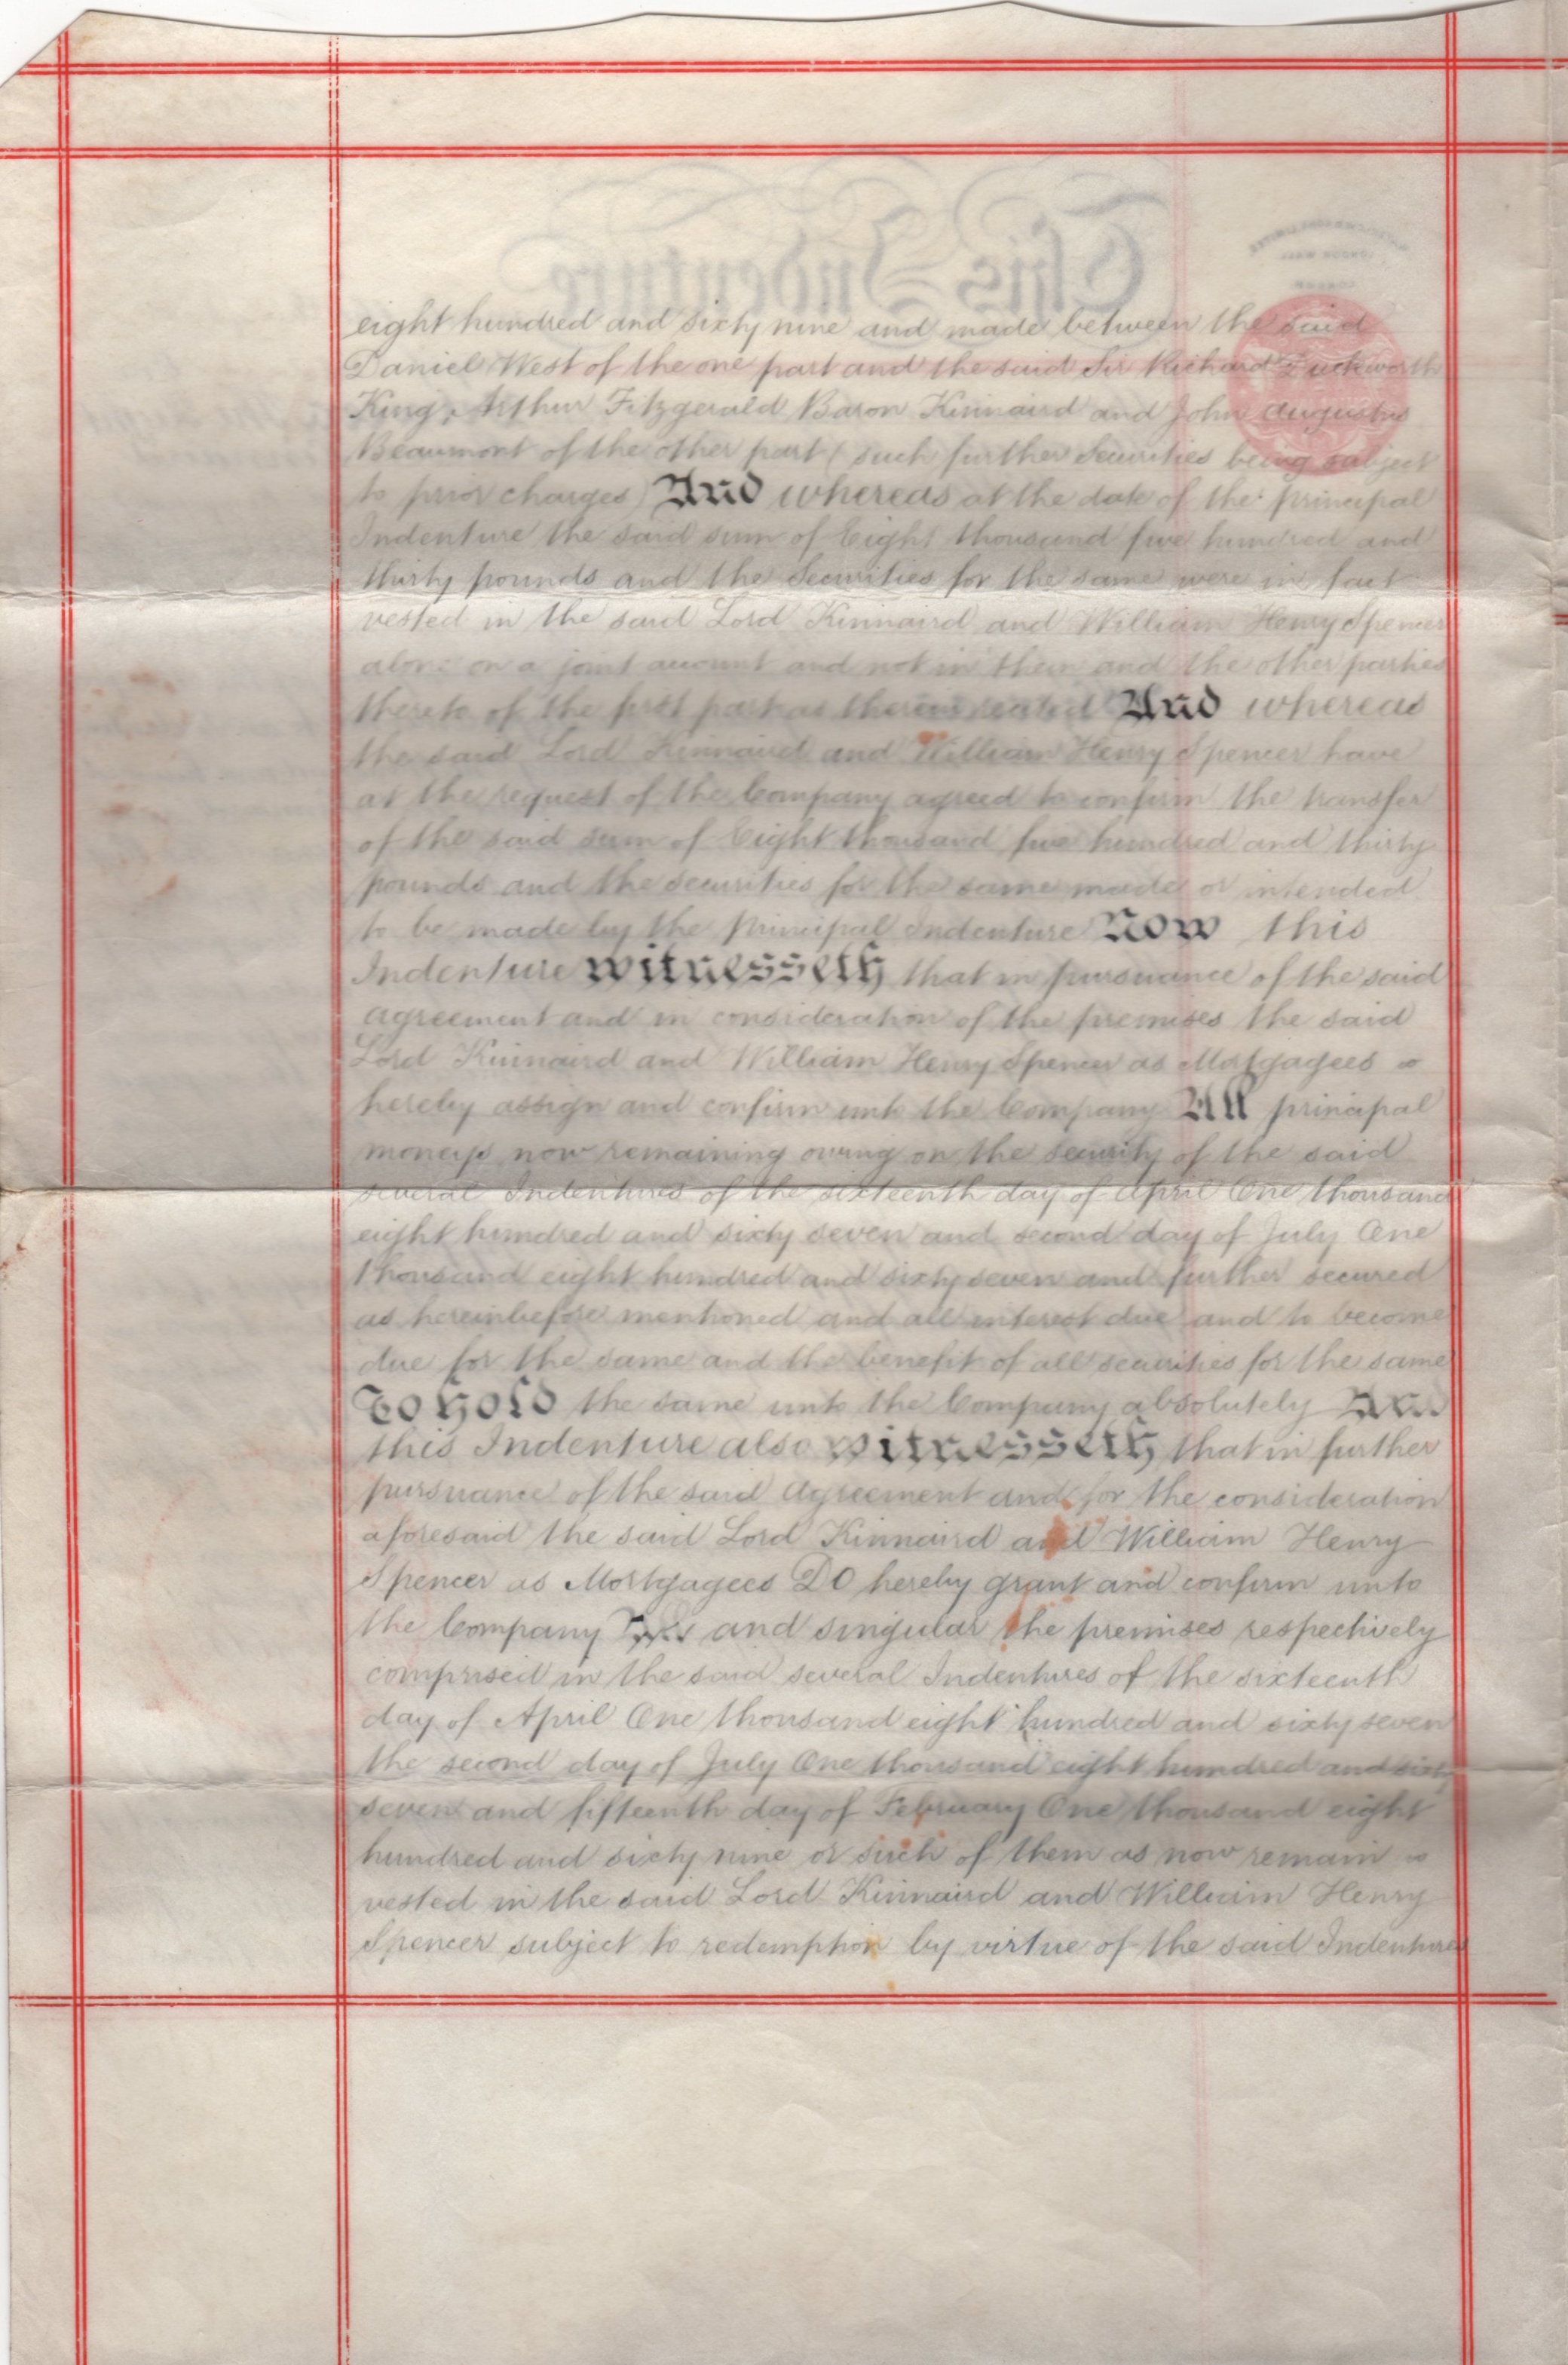 This Indenture
eight hundred and sixty nine and made between the said
Daniel West of the one part and the said Sir Richard Duckworth
King, Arthur Fitzgerald Baron Kinnaird and John Augustus
Beaumont of the other part (such further Securities being subject
to prior charges) And whereas at the date of the principal
Indenture the said sum of Eight thousand five hundred and
thirty pounds and the Securities for the same were in fact
vested in the said Lord Kinnaird and William Henry Spencer
alone on a joint account and not in them and the other parties
thereto of the first part as therein recited And whereas
the said Lord Kinnaird and William Henry Spencer have
at the request of the Company agreed to confirm the transfer
of the said sum of Eight thousand five hundred and thirty
pounds and the securities for the same made or intended
to be made by the principal Indenture Now this
Indenture witnesseth that in pursuance of the said
agreement and in consideration of the premises the said
Lord Kinnaird and William Henry Spencer as Mortgagees
hereby assign and confirm unto the Company All principal
moneys now remaining owing on the security of the said
several Indentures of the sixteenth day of April One thousand
eight hundred and sixty seven and second day of July One
thousand eight hundred and sixty seven and further secured
as hereinbefore mentioned and all interest due and to become
due for the same and the benefit of all securities for the same
To hold the same unto the Company absolutely And
this Indenture also witnesseth that in further
pursuance of the said agreement and for the consideration
aforesaid the said Lord Kinnaird and William Henry
Spencer as Mortgagees DO hereby grant and confirm unto
the Company and singular the premises respectively
comprised in the said several Indentures of the sixteenth
day of April One thousand eight hundred and sixty seven
the second day of July One thousand eight hundred and sixty
seven and fifteenth day of February One thousand eight
hundred and sixty nine or such of them as now remain
vested in the said Lord Kinnaird and William Henry
Spencer subject to redemption by virtue of the said Indentures